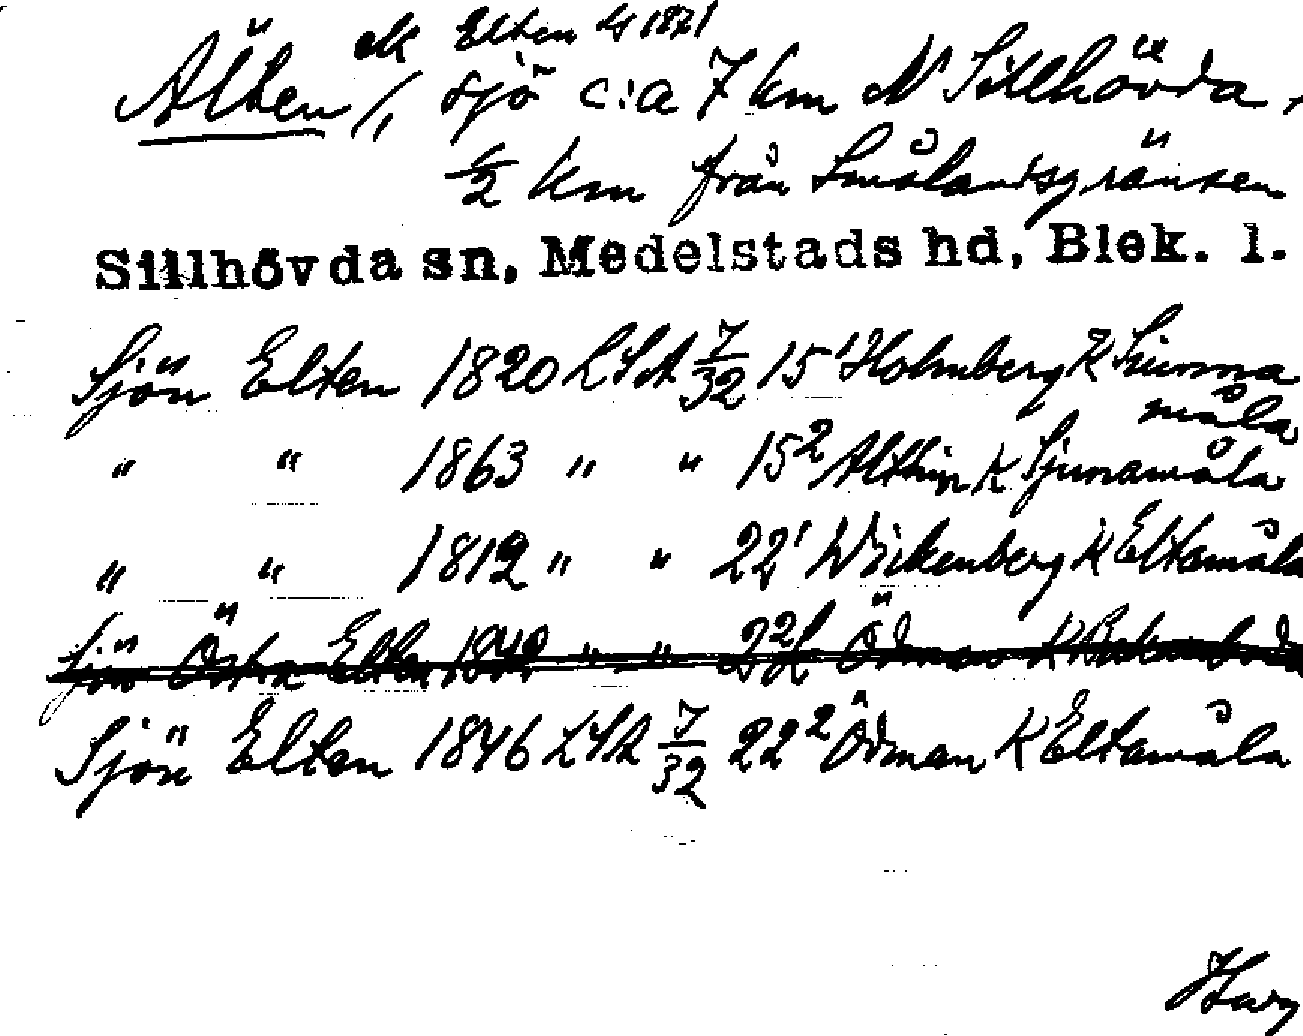 ek Elten G 1871
Älten /, sjö c:a 7 km N Sillhövda,
1/2 km från Smålandsgränsen
Sillhövda sn, Medelstads hd, Blek. l.
Sjön Elten 1820 LSA 7/32 15¹ Holmberg K Sunna
måla
" " 1863 " " 15² Althin K Sjunamåla
" " 1812 " " 22¹ Wickenberg K Eltamåla
Sjön Östra Elten 1842 " " 22² Ödman K
Sjön Elten 1846 LSA 7/32 22² Ödman K Eltamåla